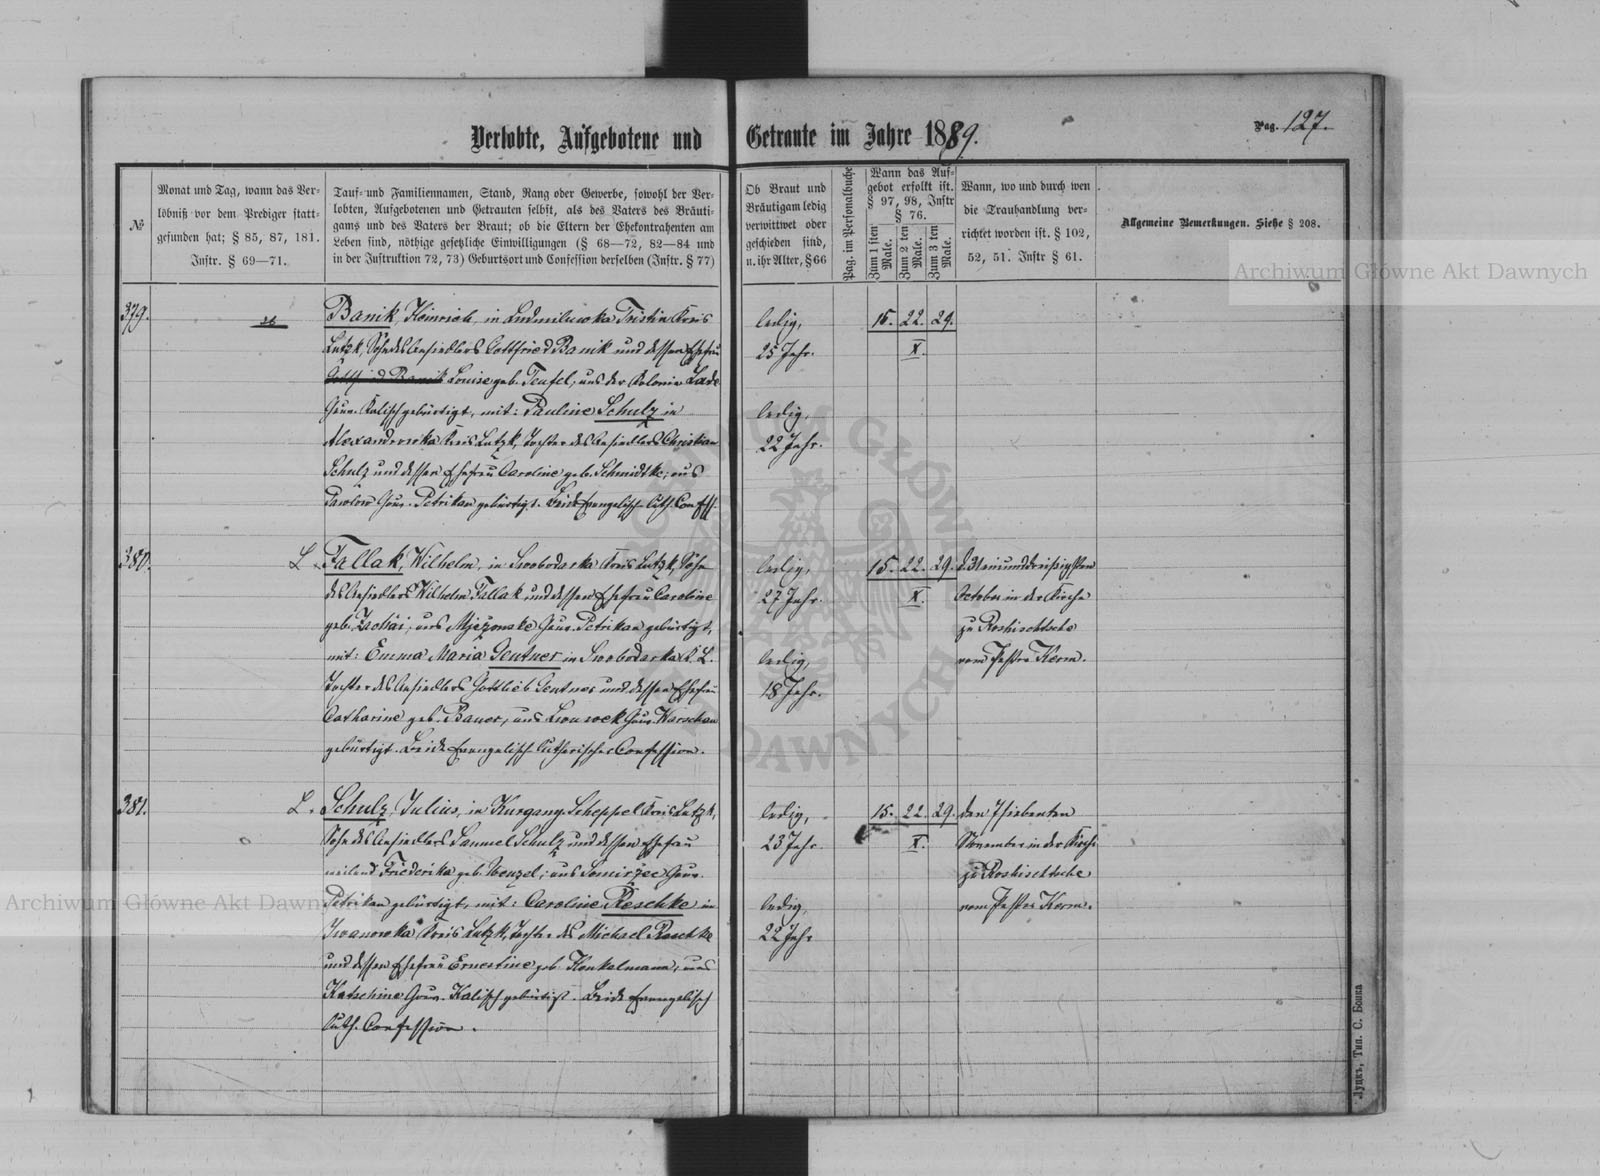 Verlobte, Aufgebotene und Getraute im Jahre 1889.
Pag. 127.
№
Monat und Tag, wann das Ver-
löbniß vor dem Prediger statt-
gefunden hat; § 85, 87, 181.
Instr. § 69—71.
Tauf- und Familiennamen, Stand, Rang oder Gewerbe, sowohl der Ver-
lobten, Aufgebotenen und Getrauten selbst, als des Vaters des Bräuti-
gams und des Vaters der Braut; ob die Eltern der Ehekontrahenten am
Leben sind, nöthige gesetzliche Einwilligungen (§ 68—72, 82—84 und
in der Instruktion 72, 73) Geburtsort und Confession derselben (Instr. § 77)
Ob Braut und
Bräutigam ledig
verwittwet oder
geschieden sind,
u. ihr Alter, § 66
Pag. im Personalbuche
Wann das Auf-
gebot erfolkt ist.
§ 97, 98, Instr
§ 76.
Zum 1 sten Male.
Zum 2 ten Male.
Zum 3 ten Male.
Wann, wo und durch wen
die Trauhandlung ver-
richtet worden ist. § 102,
52, 51. Instr § 61.
Allgemeine Bemerkungen. Siehe § 208.
379.
Banik, Heinrich, in Ludmilowka Tristin Kreis
Lutzk, Sohn des Ansiedlers Gottfried Banik und dessen Ehefrau
Gottfried Banik Louise geb. Teufel, aus der Kolonie
Gouv. Kalisch gebürtigt, mit: Pauline Schulz in
Alexandrowka Kreis Lutzk, Tochter des Ansiedlers Christian
Schulz und dessen Ehefrau Caroline geb. Schmidtke; aus
Pawlow Gouv. Petrikau gebürtigt. Beide Evangelisch-Luth. Conff.
ledig,
25 Jahr.
ledig,
22 Jahr.
15. 22. 29.
X.
380.
L.
Fallak, Wilhelm, in Swobodarka Kreis Lutzk, Sohn
des Ansiedlers Wilhelm Fallak und dessen Ehefrau Caroline
geb. aus Gouv. Petrikau gebürtigt,
mit: Emma Maria Gentner in Swobodarka K. L.
Tochter des Ansiedlers Gottlieb Gentner und dessen Ehefrau
Catharine geb. Bauer, aus Gouv. Warschau
gebürtigt. Beide Evangelisch-Lutherischer Confession.
ledig,
27 Jahr.
ledig,
18 Jahr.
15. 22. 29.
X.
d. 31 einunddreißigsten
October in der Kirche
zu Roshischtsche
vom Pastor Kerm.
381.
L.
Schulz, Julius, in Kurgany Scheppel Kreis Lutzk,
Sohn des Ansiedlers Samuel Schulz und dessen Ehefrau
weiland Friederika geb. Wenzel; aus Gouv.
Petrikau gebürtigt, mit: Caroline Reschke in
Iwanowka Kreis Lutzk, Tochter des Michael Reschke
und dessen Ehefrau Ernestine geb. Kunkelmann, aus
Katschine Gouv. Kalisch gebürtigt. Beide Evangelisch
Luth. Confession.
ledig,
23 Jahr
ledig,
22 Jahr
15. 22. 29.
X.
den 7 siebenten
November in der Kirche
zu Roshischtsche
vom Pastor Kerm.
Луцкъ, Тип. С. Бонка
Archiwum Główne Akt Dawnych
Archiwum Główne Akt Dawnych